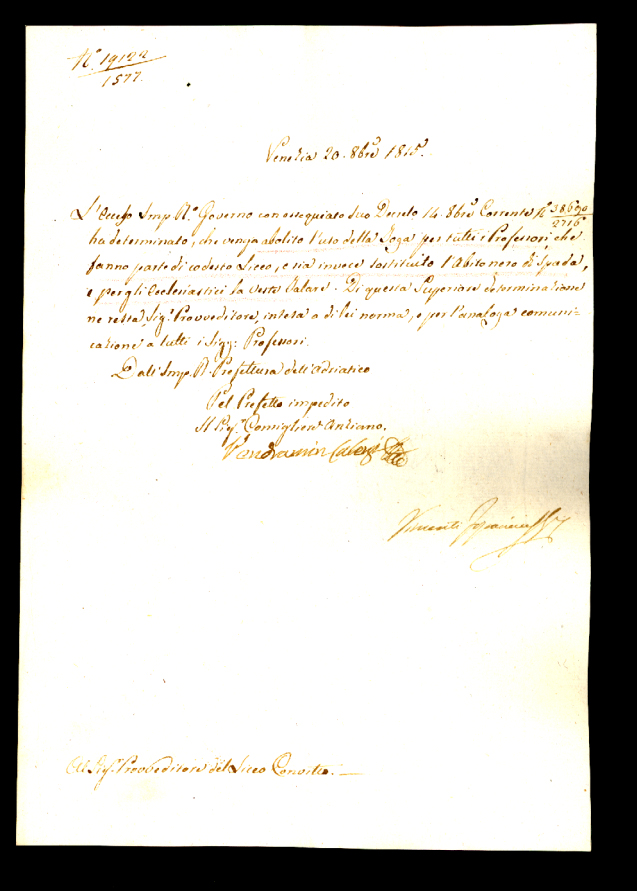 N.° 19122
1577.
Venezia 20. 8bre 1815.
L'Eccelso Imp. R.° Governo con ossequiato suo Decreto 14. 8bre Corrente N.°
ha determinato, che venga abolito l'uso della Toga per tutti i Professori, che
fanno parte di codesto Liceo, e sia invece sostituito l'Abito nero di Spada,
e per gli Ecclesiastici la Veste Talare. Di questa Superiore determinazione
ne resta, Sig.r Provveditore, intesa a di lei norma, e per l'analoga comuni-
cazione a tutti i Sigg: Professori.
Dall'Imp. R. Prefettura dell'Adriatico
Pel Prefetto impedito
Il Consigliere Anziano.
Vendramin Calergi
Al Sig.r Provveditore del Liceo Convitto.